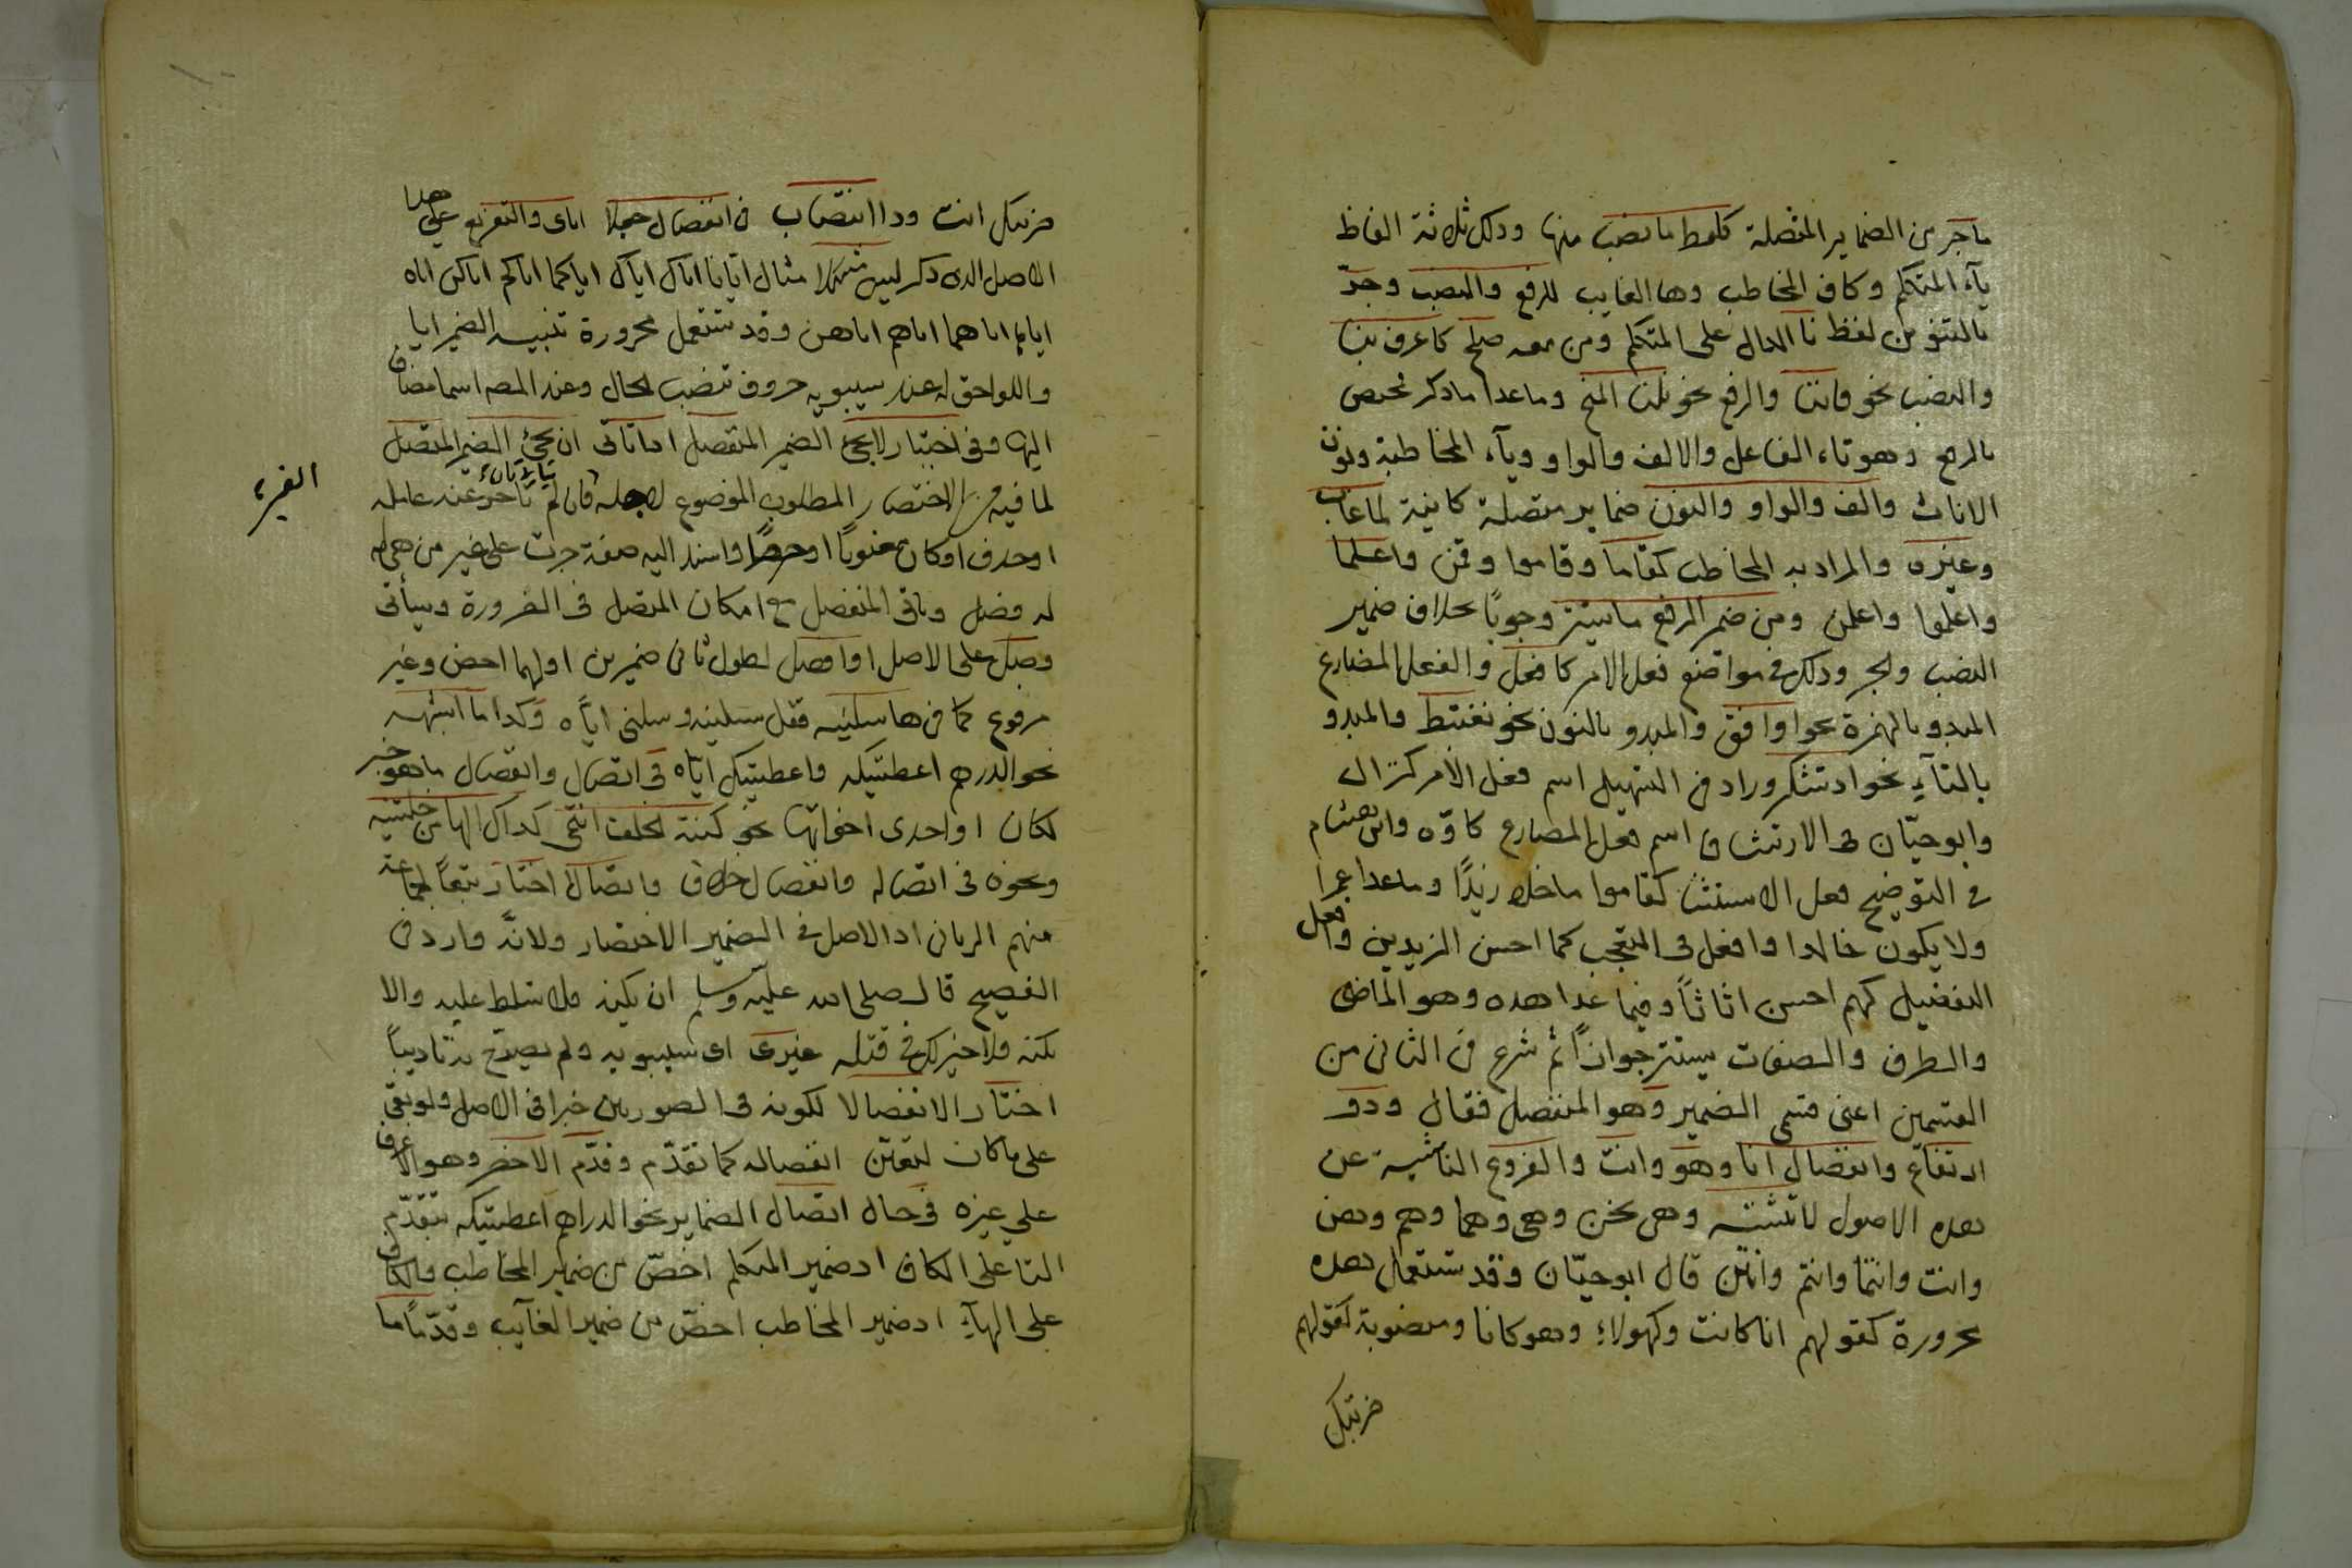 ما جر من الضماير المتصلة كلفظ ما نصب منها وذلك ثلاثة الفاظ
يآء المتكلم وكاف المخاطب وها الغايب للرفع والنصب وجرّ
بالتنوين لفظ نا الدال على المتكلم ومن معه صلح كاعرف بنا
والنصب نحو فاننا والرفع نحو نلنا المنح وما عدا ما ذكر مختص
بالرفع وهو تاء الفاعل والالف والواو ويآء المخاطبة ونون
الاناث والف والواو والنون ضماير متصلة كاينة لما غاب
وغيره والمراد به المخاطب كقاما وقاموا وقمن واعلما
واعلموا واعلمن ومن ضمير الرفع ما يستتر وجوبًا بخلاف ضمير
النصب والجر وذلك في مواضع فعل الامر كافعل والفعل المضارع
المبدو بالهمزة نحو اوافق والمبدو بالنون نحو نغتبط والمبدو
بالتآء نحو اذ تشكر وزاد في التسهيل اسم فعل الامر كنزال
وابو حيّان في الارتشاف اسم فعل المضارع كاوّه وابن هشام
في التوضيح فعل الاستثنا كقاموا ما خلا زيدًا وما عدا عمرا
ولا يكون خالدا وافعل في التعجب كما احسن الزيدين وافعل
التفضيل كهم احسن اثاثاً وفيما عدا هذه وهو الماضى
والظرف والصفات يستتر جوازاً ثم شرع في الثاني من
القسمين اعنى قسمى الضمير وهو المنفصل فقال وذو
ارتفاع وانفصال انا وهو وانت والفروع الناشية عن
هذه الاصول لا تشتبه وهى نحن وهى وهما وهم وهن
وانت وانتما وانتم وانتن قال ابو حيّان وقد تستعمل هذه
مجرورة كقولهم انا كانت وكهولاء وهو كانا ومنصوبة كقولهم
ضربتك
ضربتك انت وذا انتصاب في انفصال جعلا اياى والتفريع على هذا
الاصل الذى ذكر ليس مشكلا مثال ايانا اياك اياك اياكما اياكم اياكن اياه
اياها اياهما اياهم اياهن وقد تستعمل مجرورة تنبيه الضمير ايا
واللواحق له عند سيبويه حروف تنصب لحال وعند المص اسما مضاف
اليها وفي اختيار لا يجئ الضمير المنفصل اذا تاتى ان يجئ الضمير المتصل
لما فيه من الاختصار المطلوب الموضوع لاجله فان لم يتات بان تاخر عنه عامله
او حذف او كان معنويًا او حصرًا واسند اليه صفة جرت على غير من هى له
له فصل وياتى المنفصل مع امكان المتصل في الضرورة وسيأتى
وصل على الاصل او افصل لطول ثانى ضميرين اولهما اخص وغير
مرفوع كما في ها سلنيه فقل سلنيه وسلنى ايّاه وكذا ما اشبهه
نحو الدرهم اعطيتكه واعطيتك ايّاه في اتصال وانفصال ما هو خبر
لكان او احدى اخواتها نحو كنته الخلف انتمى كذاك الها من خلتنيه
ونحوه في اتصاله وانفصاله خلاف واتصالا اختار تبعاً لجماعة
منهم الرمانى اذ الاصل في الضمير الاختصار ولانّه وارد في
الفصيح قال صلى الله عليه وسلم ان يكنه فلن تسلط عليه والا
يكنه فلا خير لك في قتله غيرى اى سيبويه ولم يصرّح به تاديباً
اختار الانفصالا لكونه في الصورتين خبرا في الاصل ولو بقى
على ما كان لتعيّن انفصاله كما تقدّم وقدّم الاخص وهو الاعرف
على غيره في حال اتصال الضماير نحو الدراهم اعطيتكه بتقدّم
التا على الكاف اذ ضمير المتكلم اخصّ من ضمير المخاطب والكاف
على الهآء اذ ضمير المخاطب اخصّ من ضمير الغآيب وقدّمًا ما